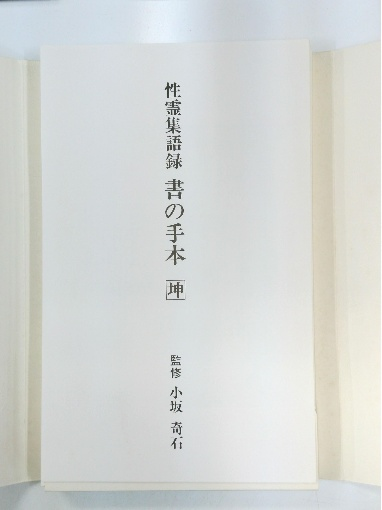 性霊集語録 書の手本 坤
監修 小坂奇石